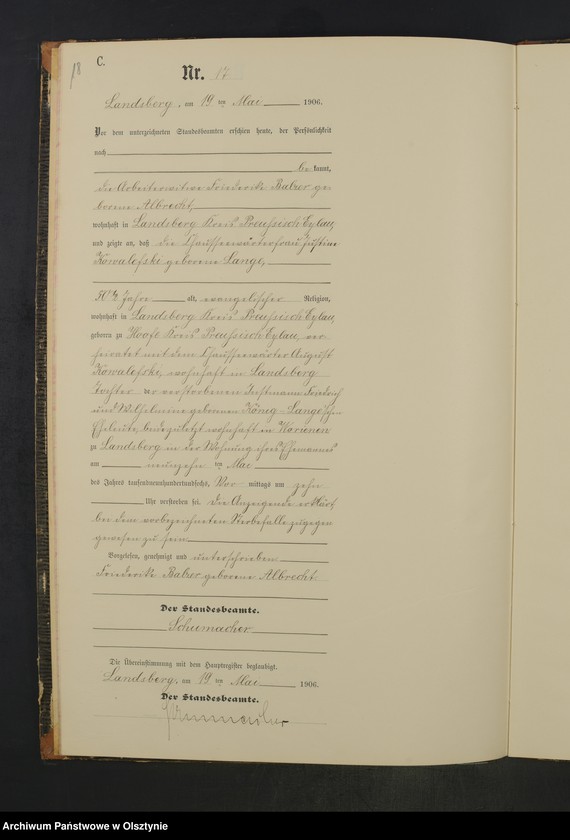 18
C.
Nr. 17
Landsberg, am 19 ten Mai 1906.
Vor dem unterzeichneten Standesbeamten erschien heute, der Persönlichkeit
nach
be kannt,
die Arbeiterwitwe Friederike Balzer ge-
borene Albrecht,
wohnhaft in Landsberg Kreis Preußisch Eylau,
und zeigte an, daß die Chausseewärterfrau Justine
Kowalefski geborene Lange,
50 1/2 Jahre alt, evangelischer Religion,
wohnhaft in Landsberg Kreis Preußisch Eylau,
geboren zu Hoofe Kreis Preußisch Eylau, ver-
heiratet mit dem Chausseewärter August
Kowalefski, wohnhaft in Landsberg
Tochter der verstorbenen Instmann Friedrich
und Wilhelmine geborenen König - Lange'schen
Eheleute, beide zuletzt wohnhaft in Worienen
zu Landsberg in der Wohnung ihres Ehemannes
am neunzehn ten Mai
des Jahres tausendneunhundertundsechs, Vor mittags um zehn
Uhr verstorben sei. Die Anzeigende erklärt,
bei dem vorbezeichneten Sterbefalle zugegen
gewesen zu sein.
Vorgelesen, genehmigt und unterschrieben
Friederike Balzer geborene Albrecht
Der Standesbeamte.
Schumacher
Die Übereinstimmung mit dem Hauptregister beglaubigt.
Landsberg, am 19 ten Mai 1906.
Der Standesbeamte.
Schumacher
Archiwum Państwowe w Olsztynie